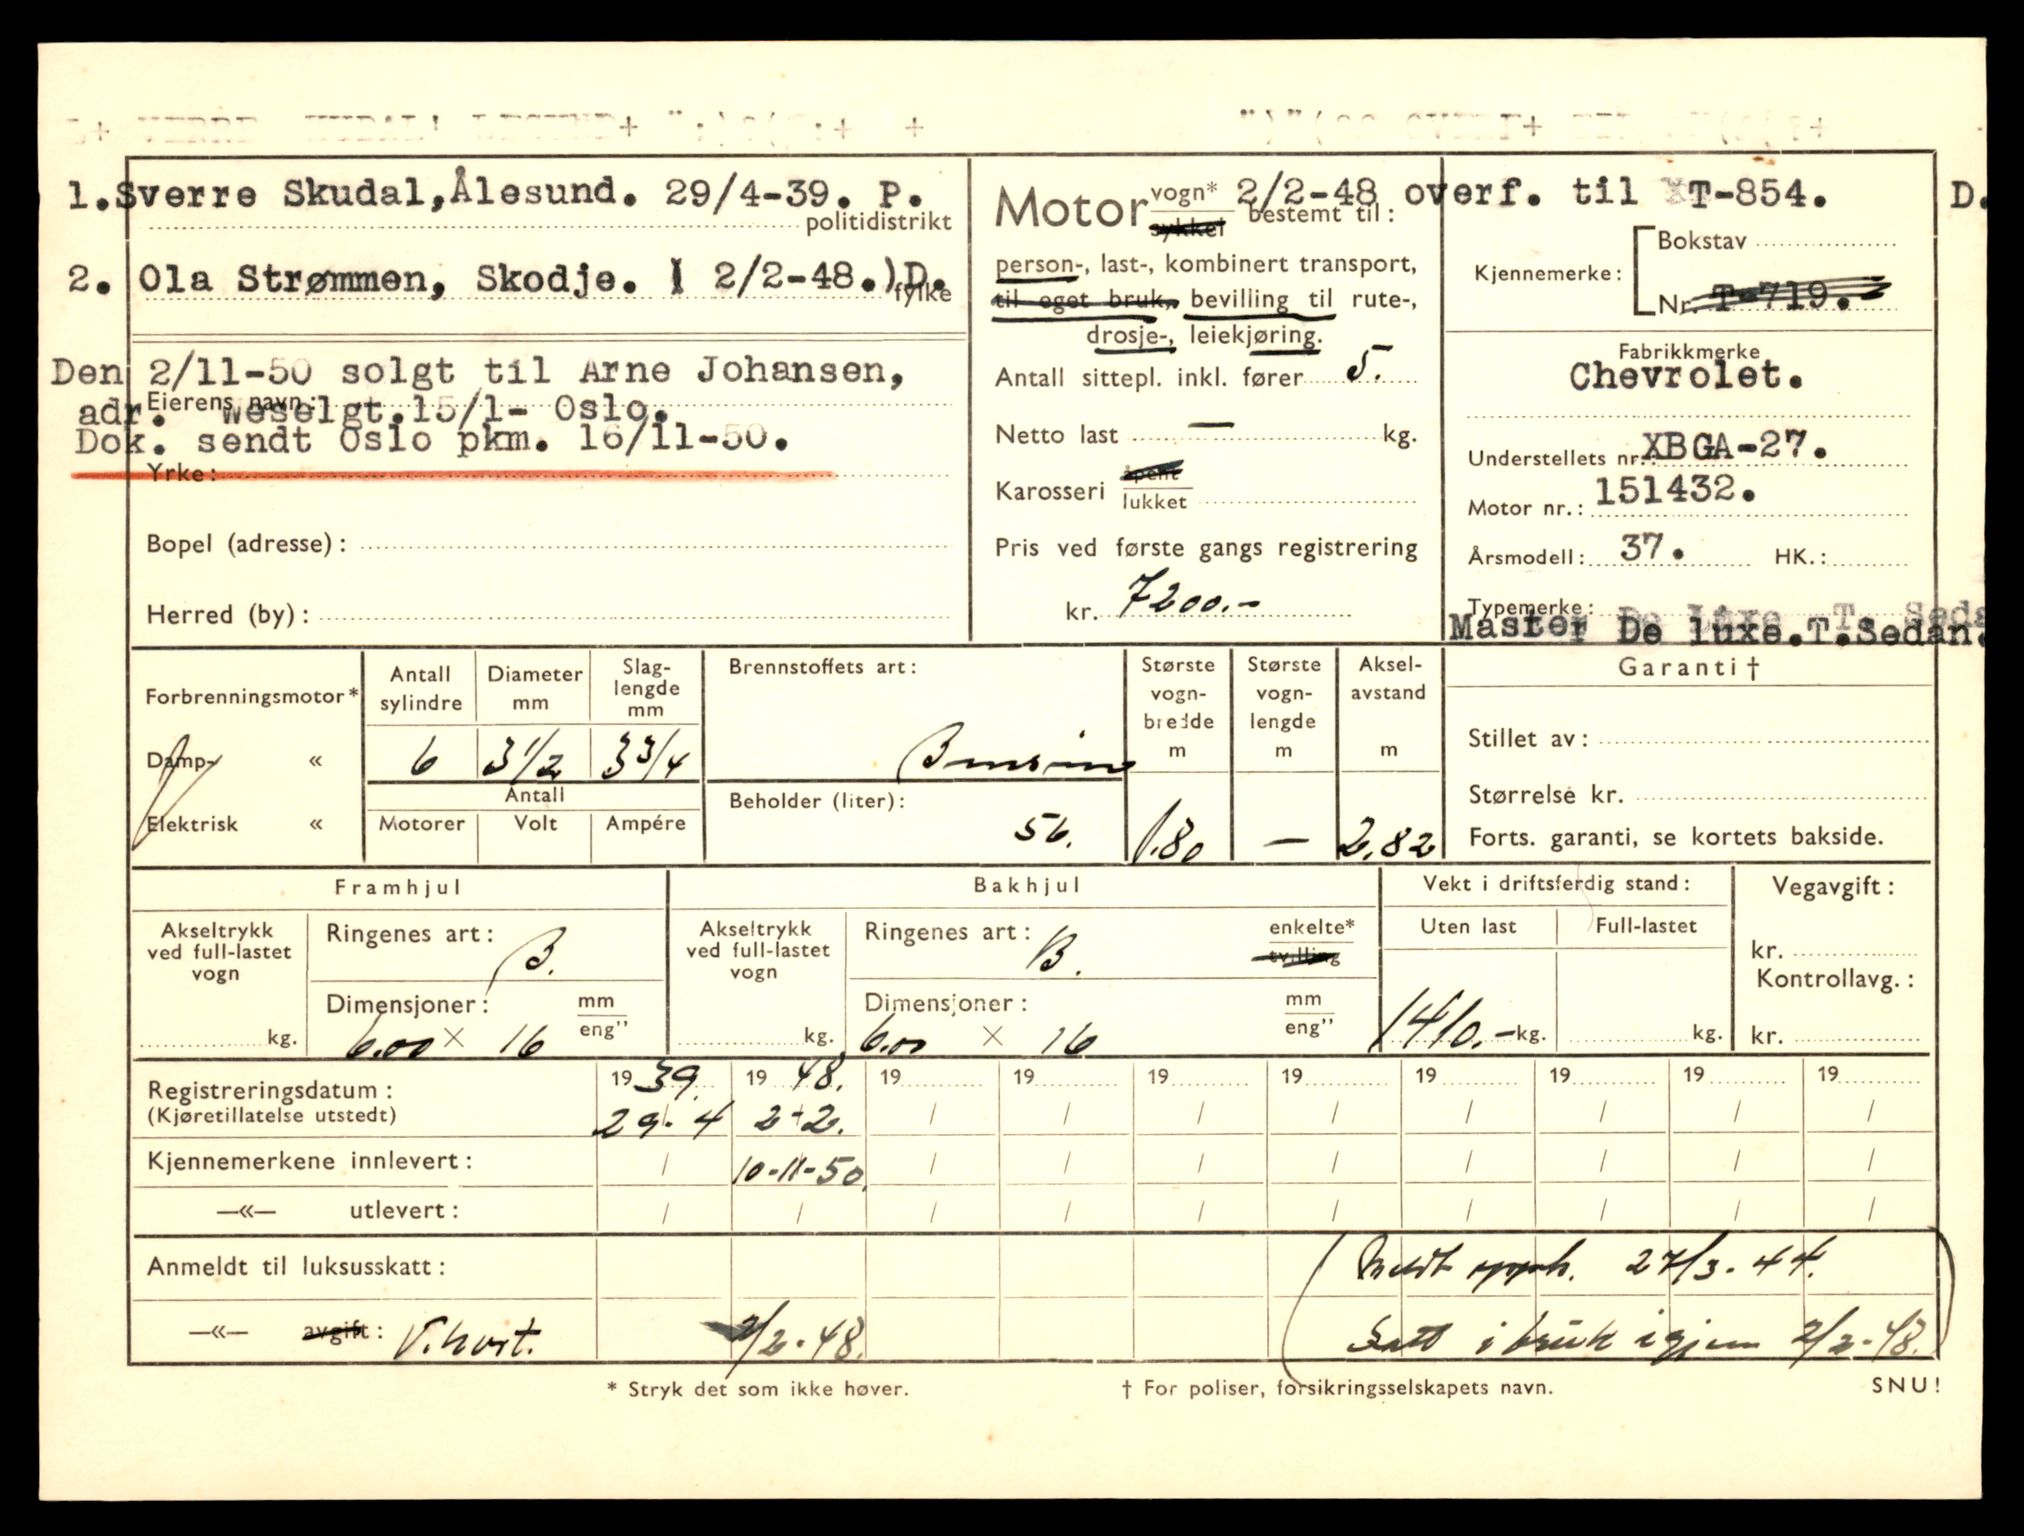 1.Sverre Skudal,Ålesund. 29/4-39. P.
politidistrikt
2. Ola Strømmen, Skodje. ( 2/2-48.)D.
fylke
Den 2/11-50 solgt til Arne Johansen,
Eierens navn:
adr. Weselgt.15/1- Oslo.
Dok. sendt Oslo pkm. 16/11-50.
Yrke:
Bopel (adresse):
Herred (by):
Motor vogn* sykkel bestemt til:
2/2-48 overf. til T-854. D.
person-, last-, kombinert transport,
til eget bruk, bevilling til rute-,
drosje-, leiekjøring.
Antall sittepl. inkl. fører 5.
Netto last — kg.
Karosseri åpent lukket
Pris ved første gangs registrering
kr. 7200.-
Bokstav
Kjennemerke:
Nr. T-719.
Fabrikkmerke
Chevrolet.
Understellets nr.: XBGA-27.
Motor nr.: 151432.
Årsmodell: 37. HK.:
Typemerke:
Master De luxe.T.Sedan.
Forbrenningsmotor*
Damp- «
Elektrisk «
Antall sylindre
6
Diameter mm
3 1/2
Slag-lengde mm
3 3/4
Antall
Motorer Volt Ampére
Brennstoffets art:
Bensin
Beholder (liter):
56.
Største vogn-bredde m
1.80
Største vogn-lengde m
—
Aksel-avstand m
2.82
Garanti†
Stillet av:
Størrelse kr.
Forts. garanti, se kortets bakside.
Framhjul
Akseltrykk ved full-lastet vogn
kg.
Ringenes art: B.
Dimensjoner: mm eng”
6.00 × 16
Bakhjul
Akseltrykk ved full-lastet vogn
kg.
Ringenes art: B.
enkelte* tvilling
Dimensjoner: mm eng”
6.00 × 16
Vekt i driftsferdig stand:
Uten last Full-lastet
1410.- kg. kg.
Vegavgift:
kr.
Kontrollavg.:
kr.
Registreringsdatum: 1939. 1948. 19 19 19 19 19 19 19 19
(Kjøretillatelse utstedt) 29.4 2-2. / / / / / / / /
Kjennemerkene innlevert: / 10-11-50. / / / / / / / /
—«— utlevert: / / / / / / / / / /
Anmeldt til luksusskatt:
Meldt opph. 27/3-44.
—«— avgift: V.hvst. 2/2-48.
Satt i bruk igjen 2/2-48.
* Stryk det som ikke høver.
† For poliser, forsikringsselskapets navn.
SNU!